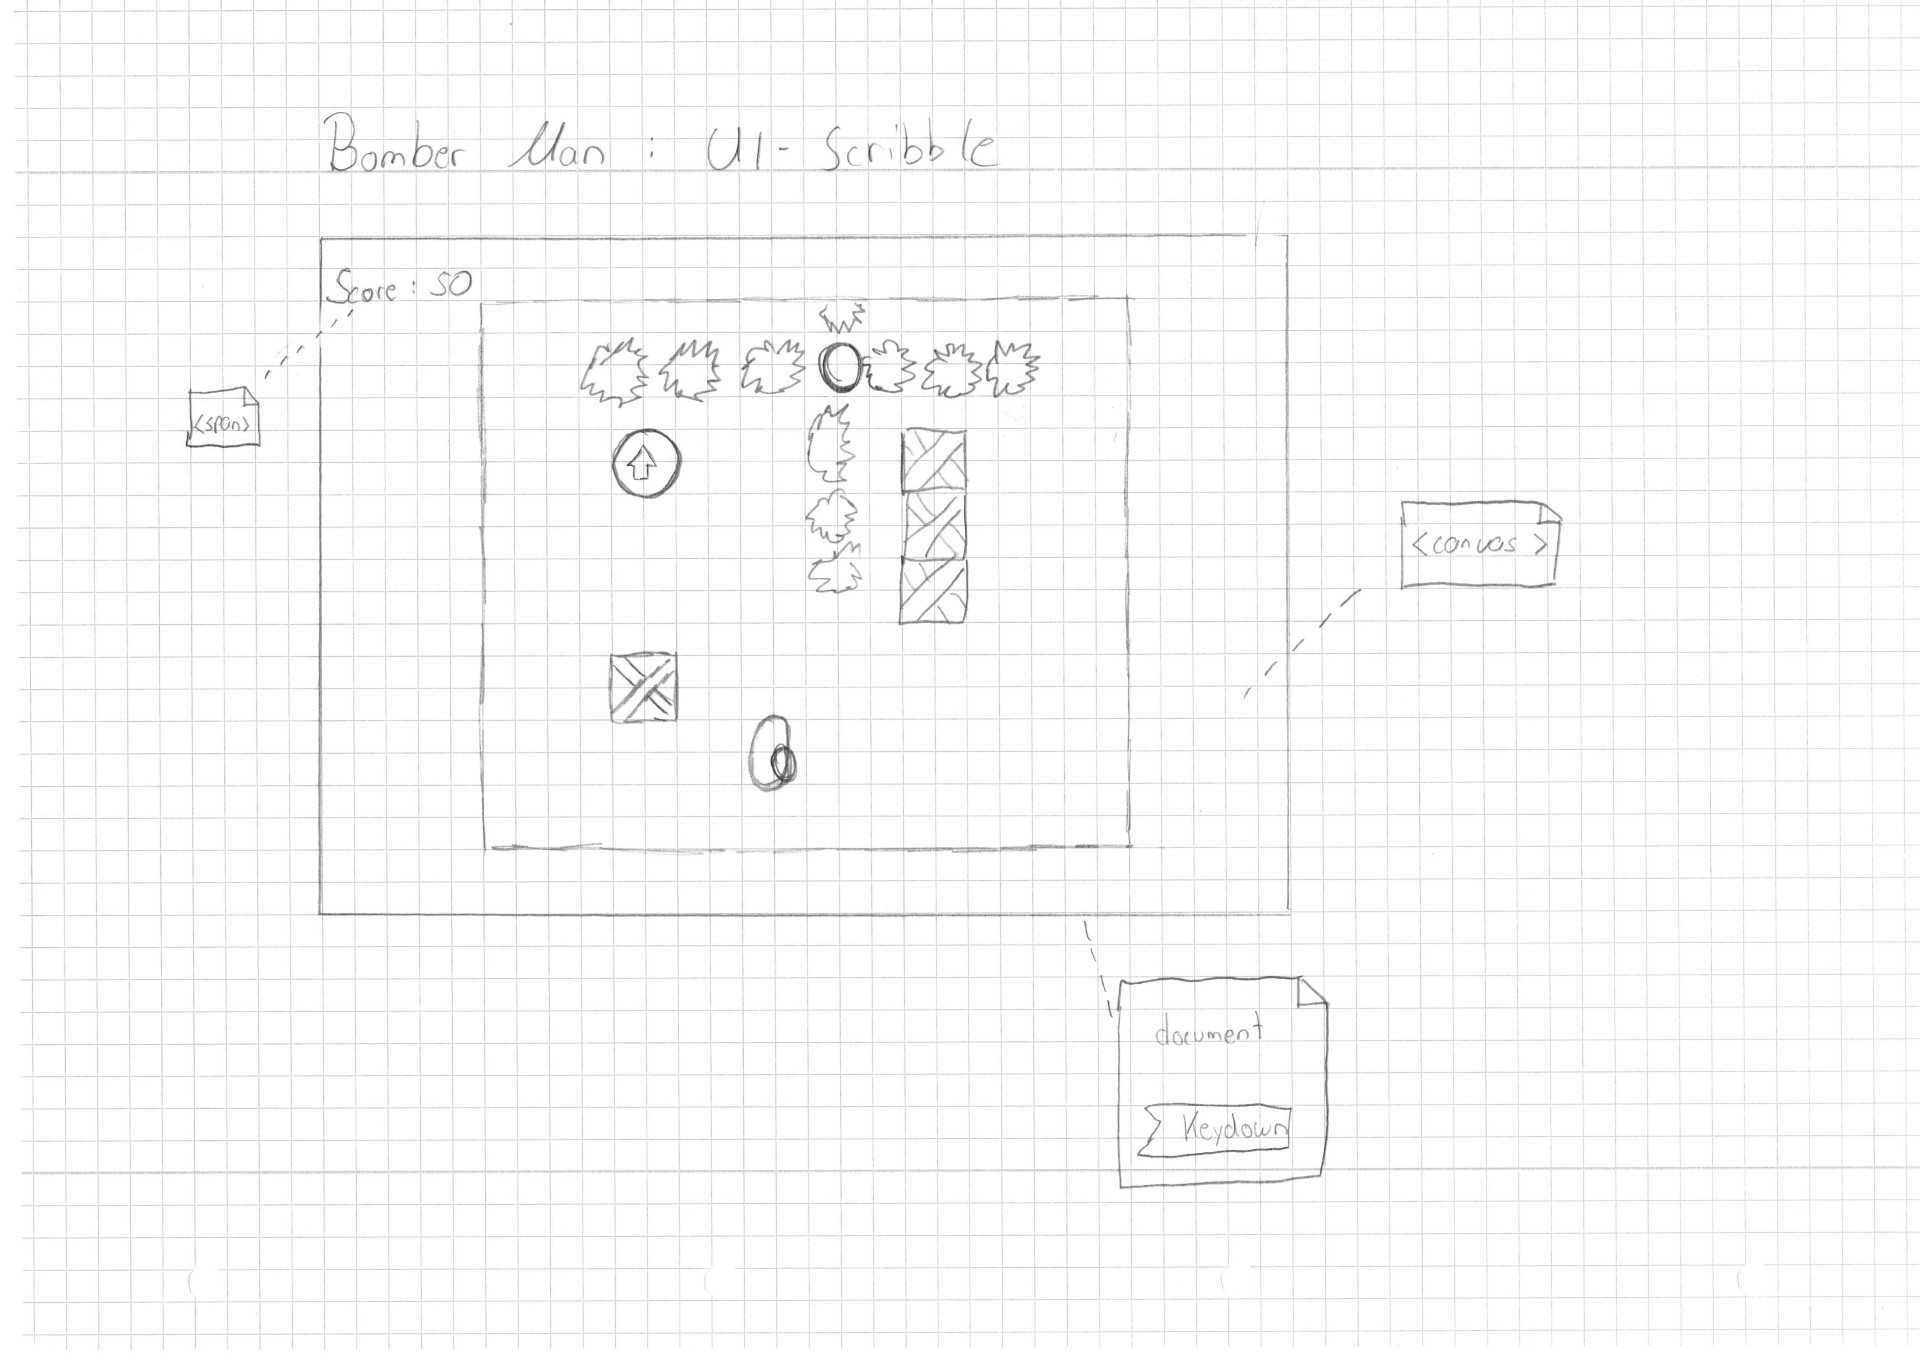 Bomber Man : UI - Scribble
Score : 50
<span>
<canvas>
document
Keydown